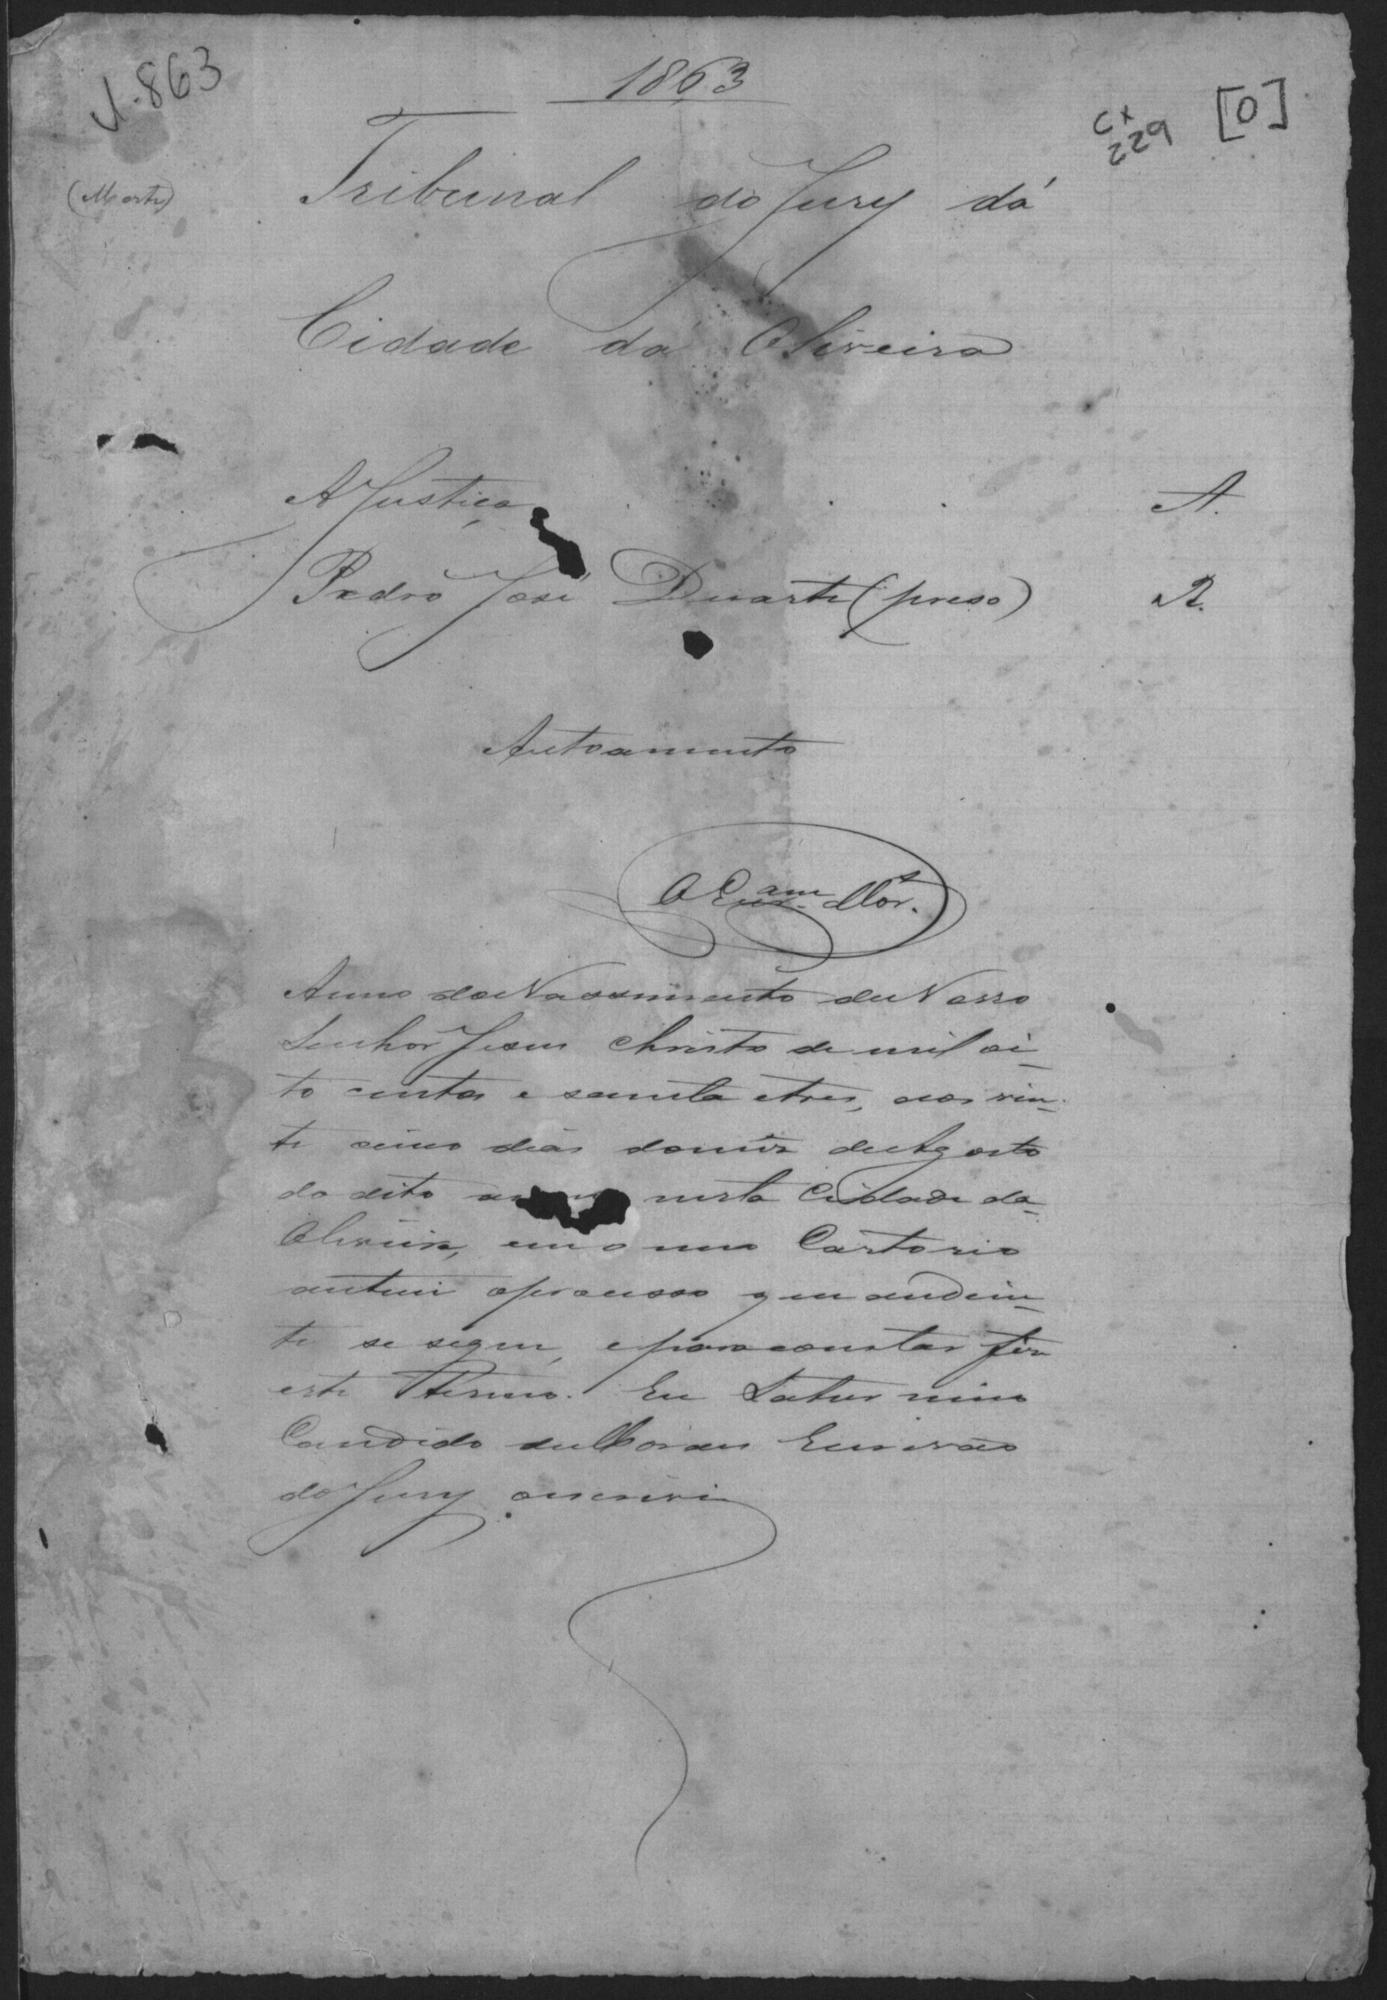 1.863
1863
Cx
229
[0]
(Morte)
Tribunal do Jury da
Cidade da Oliveira
A Justiça . . . A.
Pedro José Duarte (preso) R.
Autoamento
O Escr.am Mor.
Anno do Nascimento de Nosso
Senhor Jesus Christo de mil oi-
to centos e secenta e tres, aos vin-
te cinco dias do mez de Agosto
do dito anno nesta Cidade da
Oliveira, em o meo Cartorio
autuei o processo que ao diin-
te se segue, e para constar fiz
este Thermo. Eu Saturnino
Candido de Moraes Escrivão
do Jury o escrevi